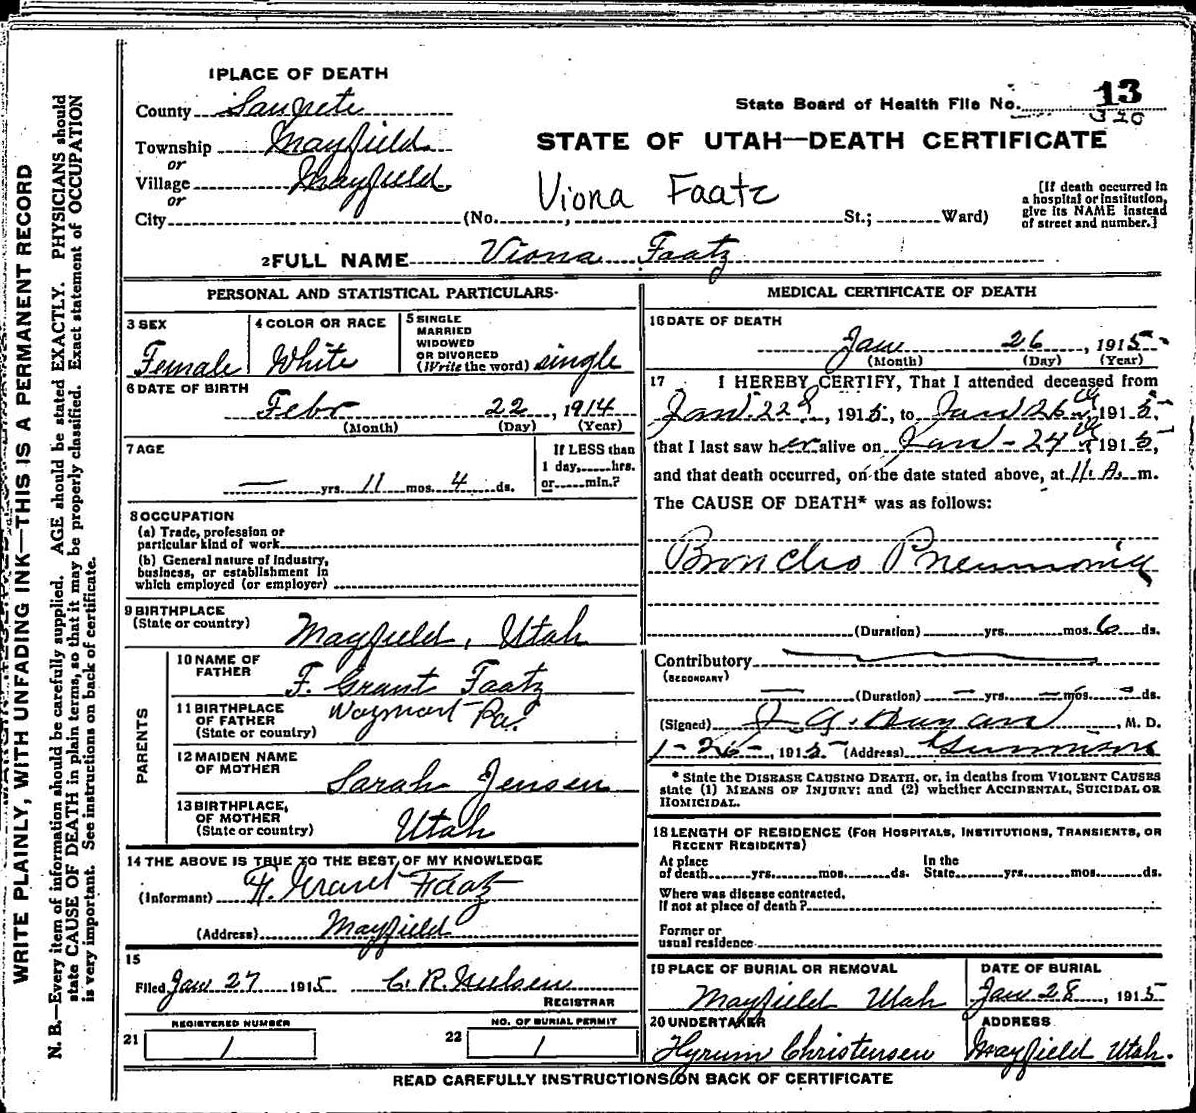 1 PLACE OF DEATH
County Sanpete
Township Mayfield
or
Village Mayfield
or
City (No. , St.; Ward)
State Board of Health File No. 13
320
STATE OF UTAH—DEATH CERTIFICATE
Viona Faatz
[If death occurred in
a hospital or institution,
give its NAME instead
of street and number.]
2 FULL NAME Viona Faatz
PERSONAL AND STATISTICAL PARTICULARS
3 SEX
Female
4 COLOR OR RACE
White
5 SINGLE
MARRIED
WIDOWED
OR DIVORCED
(Write the word) single
6 DATE OF BIRTH
Febr 22, 1914
(Month) (Day) (Year)
7 AGE
— yrs. 11 mos. 4 ds.
If LESS than
1 day, hrs.
or min.?
8 OCCUPATION
(a) Trade, profession or
particular kind of work
(b) General nature of industry,
business, or establishment in
which employed (or employer)
9 BIRTHPLACE
(State or country)
Mayfield, Utah
PARENTS
10 NAME OF
FATHER
F. Grant Faatz
11 BIRTHPLACE
OF FATHER
(State or country)
Waymart Pa.
12 MAIDEN NAME
OF MOTHER
Sarah Jensen
13 BIRTHPLACE,
OF MOTHER
(State or country)
Utah
14 THE ABOVE IS TRUE TO THE BEST OF MY KNOWLEDGE
(Informant) F. Grant Faatz
(Address) Mayfield
15
Filed Jan 27 1915 C. R. Nielsen
REGISTRAR
21 REGISTERED NUMBER
1
22 NO. OF BURIAL PERMIT
1
MEDICAL CERTIFICATE OF DEATH
16 DATE OF DEATH
Jan 26, 1915
(Month) (Day) (Year)
17 I HEREBY CERTIFY, That I attended deceased from
Jan. 22, 1915, to Jan 26th 1915,
that I last saw her alive on Jan - 24th 1915,
and that death occurred, on the date stated above, at 11. A. m.
The CAUSE OF DEATH* was as follows:
Broncho Pneumonia
(Duration) yrs. mos. 6 ds.
Contributory
(SECONDARY)
— (Duration) — yrs. — mos. — ds.
(Signed) , M. D.
1-26-, 1915 (Address) Gunnison
* State the DISEASE CAUSING DEATH, or, in deaths from VIOLENT CAUSES
state (1) MEANS OF INJURY; and (2) whether ACCIDENTAL, SUICIDAL OR
HOMICIDAL.
18 LENGTH OF RESIDENCE (FOR HOSPITALS, INSTITUTIONS, TRANSIENTS, OR
RECENT RESIDENTS)
At place
of death yrs. mos. ds.
In the
State yrs. mos. ds.
Where was disease contracted,
If not at place of death?
Former or
usual residence
19 PLACE OF BURIAL OR REMOVAL
Mayfield Utah
DATE OF BURIAL
Jan 28, 1915
20 UNDERTAKER
Hyrum Christensen
ADDRESS
Mayfield Utah.
READ CAREFULLY INSTRUCTIONS ON BACK OF CERTIFICATE
WRITE PLAINLY, WITH UNFADING INK—THIS IS A PERMANENT RECORD
N. B.—Every item of information should be carefully supplied. AGE should be stated EXACTLY. PHYSICIANS should
state CAUSE OF DEATH in plain terms, so that it may be properly classified. Exact statement of OCCUPATION
is very important. See instructions on back of certificate.